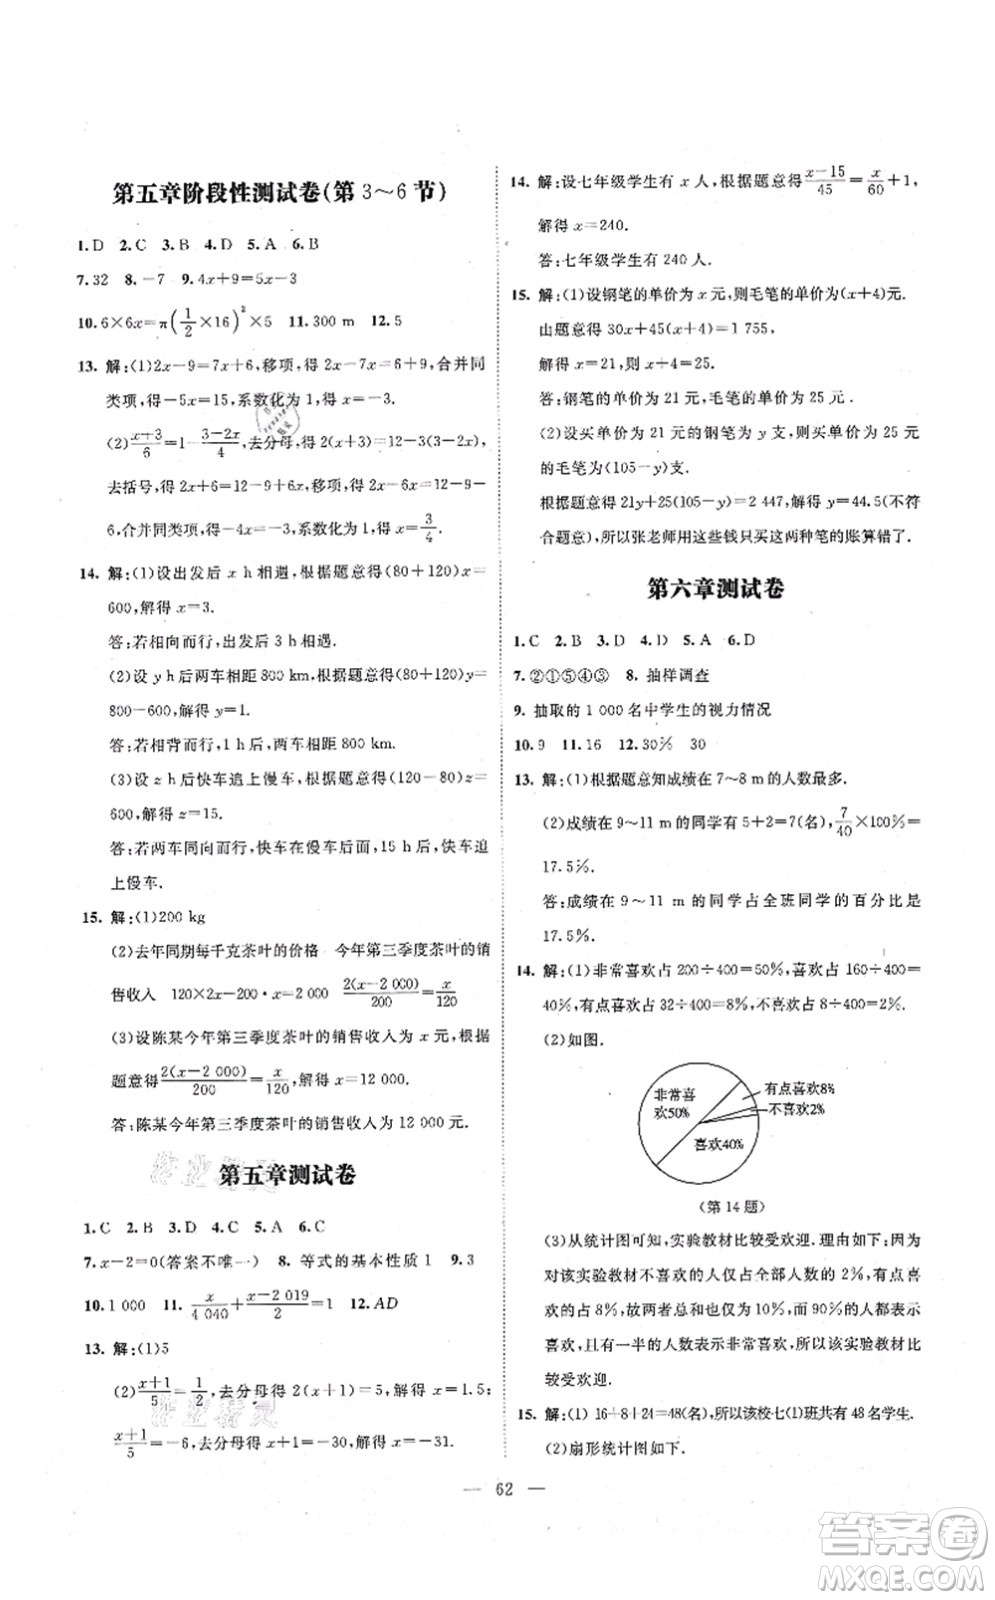 第五章阶段性测试卷(第 3～6 节)
1.D 2.C 3.B 4.D 5.A 6.B
7.32 8.-7 9.4x+9=5x-3
10.6×6x=π(1/2×16)²×5 11.300 m 12.5
13. 解:(1)2x-9=7x+6,移项,得 2x-7x=6+9,合并同
类项,得-5x=15,系数化为 1,得 x=-3.
(2)(x+3)/6=1-(3-2x)/4,去分母,得 2(x+3)=12-3(3-2x),
去括号,得 2x+6=12-9+6x,移项,得 2x-6x=12-9-
6,合并同类项,得-4x=-3,系数化为 1,得 x=3/4.
14. 解:(1)设出发后 x h 相遇,根据题意得(80+120)x=
600,解得 x=3.
答:若相向而行,出发后 3 h 相遇.
(2)设 y h 后两车相距 800 km,根据题意得(80+120)y=
800-600,解得 y=1.
答:若相背而行,1 h 后,两车相距 800 km.
(3)设 z h 后快车追上慢车,根据题意得(120-80)z=
600,解得 z=15.
答:若两车同向而行,快车在慢车后面,15 h 后,快车追
上慢车.
15. 解:(1)200 kg
(2)去年同期每千克茶叶的价格 今年第三季度茶叶的销
售收入 120×2x-200·x=2 000 2(x-2 000)/200=x/120
(3)设陈某今年第三季度茶叶的销售收入为 x 元,根据
题意得2(x-2 000)/200=x/120,解得 x=12 000.
答:陈某今年第三季度茶叶的销售收入为 12 000 元.
第五章测试卷
1.C 2.B 3.D 4.C 5.A 6.C
7.x-2=0(答案不唯一) 8. 等式的基本性质 1 9.3
10.1 000 11. x/4 040+(x-2 019)/2=1 12.AD
13. 解:(1)5
(2)(x+1)/5=1/2,去分母得 2(x+1)=5,解得 x=1.5;
(x+1)/5=-6,去分母得 x+1=-30,解得 x=-31.
14. 解:设七年级学生有 x 人,根据题意得(x-15)/45=x/60+1,
解得 x=240.
答:七年级学生有 240 人.
15. 解:(1)设钢笔的单价为 x 元,则毛笔的单价为(x+4)元.
由题意得 30x+45(x+4)=1 755,
解得 x=21,则 x+4=25.
答:钢笔的单价为 21 元,毛笔的单价为 25 元.
(2)设买单价为 21 元的钢笔为 y 支,则买单价为 25 元
的毛笔为(105-y)支.
根据题意得 21y+25(105-y)=2 447,解得 y=44.5(不符
合题意),所以张老师用这些钱只买这两种笔的账算错了.
第六章测试卷
1.C 2.B 3.D 4.D 5.A 6.D
7.②①⑤④③ 8. 抽样调查
9. 抽取的 1 000 名中学生的视力情况
10.9 11.16 12.30% 30
13. 解:(1)根据题意知成绩在 7～8 m 的人数最多.
(2)成绩在 9～11 m 的同学有 5+2=7(名),7/40×100%=
17.5%.
答:成绩在 9～11 m 的同学占全班同学的百分比是
17.5%.
14. 解:(1)非常喜欢占 200÷400=50%,喜欢占 160÷400=
40%,有点喜欢占 32÷400=8%,不喜欢占 8÷400=2%.
(2)如图.
非常喜
欢50%
有点喜欢8%
不喜欢2%
喜欢40%
(第 14 题)
(3)从统计图可知,实验教材比较受欢迎.理由如下:因为
对该实验教材不喜欢的人仅占总人数的 2%,有点
喜欢的占 8%,故两者总和也仅为 10%,而 90%的人都
喜欢,且只有一半的人数表示非常喜欢,所以该实验教材比
较受欢迎.
15. 解:(1) 16+8+24=48(名),所以该校七(1)班共有 48 名学生.
(2)扇形统计图如下.
— 62 —
作业精灵
作业精灵
答案圈
MXQE.COM